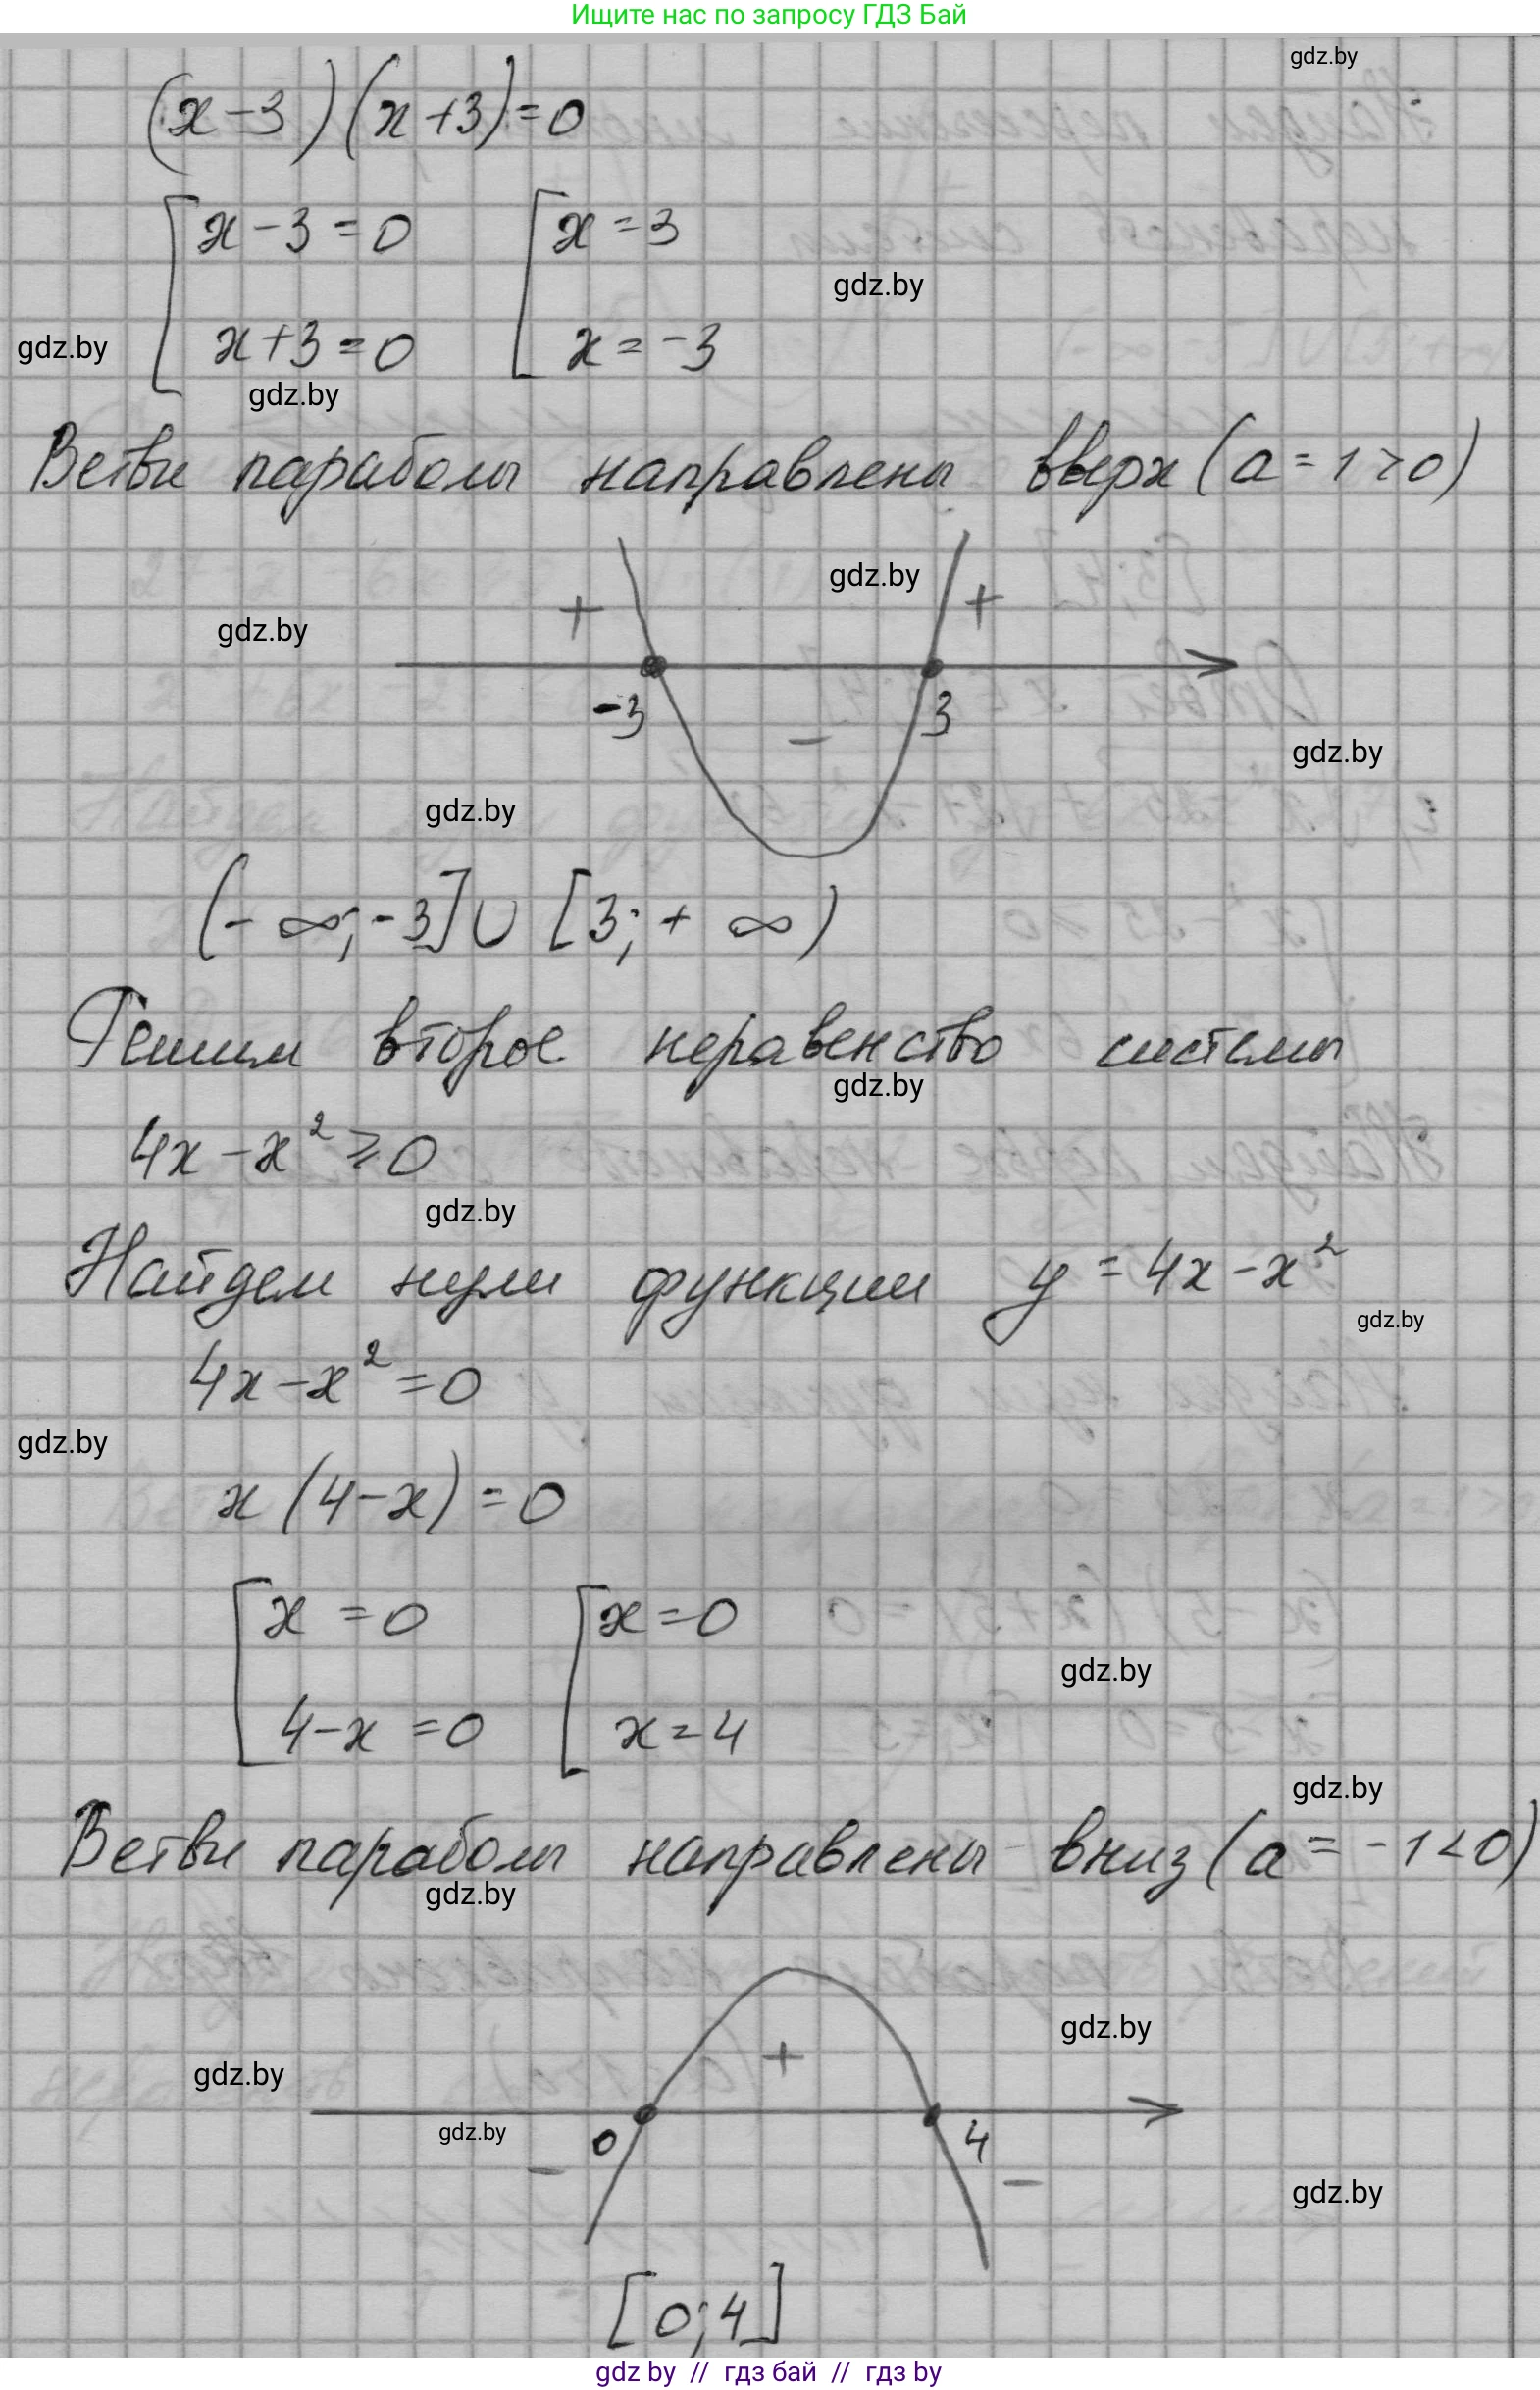 Ищите нас по запросу ГДЗ Бай
gdz.by
(x-3)(x+3)=0
x-3=0 x=3
gdz.by
x+3=0 x=-3
gdz.by
gdz.by
Ветви параболы направлены вверх (a=1>0)
gdz.by
+ +
gdz.by
-3 3
-
gdz.by
gdz.by
(-∞;-3]∪[3;+∞)
Решим второе неравенство системы
gdz.by
4x-x²≥0
gdz.by
Найдем нули функции y=4x-x²
gdz.by
4x-x²=0
gdz.by
x(4-x)=0
x=0 x=0
gdz.by
4-x=0 x=4
gdz.by
Ветви параболы направлены вниз (a=-1<0)
gdz.by
gdz.by
+
gdz.by
gdz.by
0 4
- -
gdz.by
[0;4]
gdz by // гдз бай // гдз by